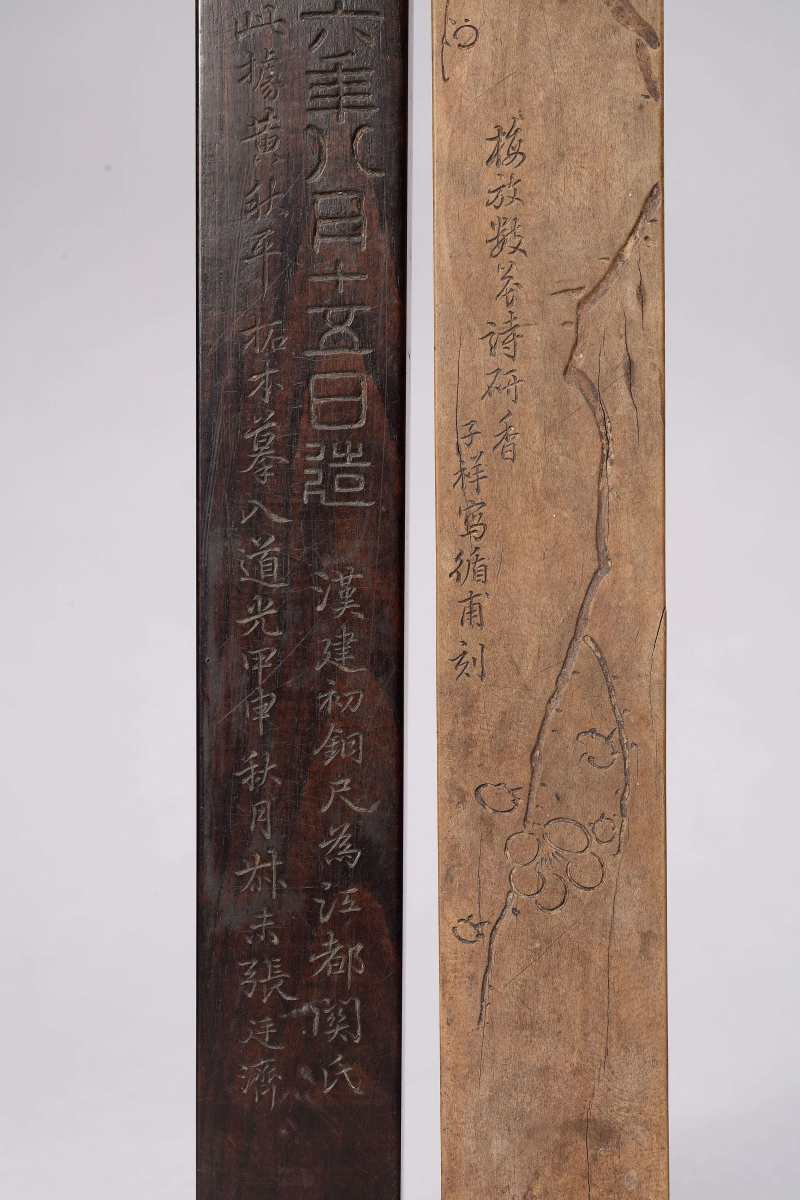 梅放數花詩研香
子祥寫循甫刻
六年八月十五日造
漢建初銅尺為江都閔氏
此據黃秋平拓本摹入道光甲申秋月叔未張廷濟